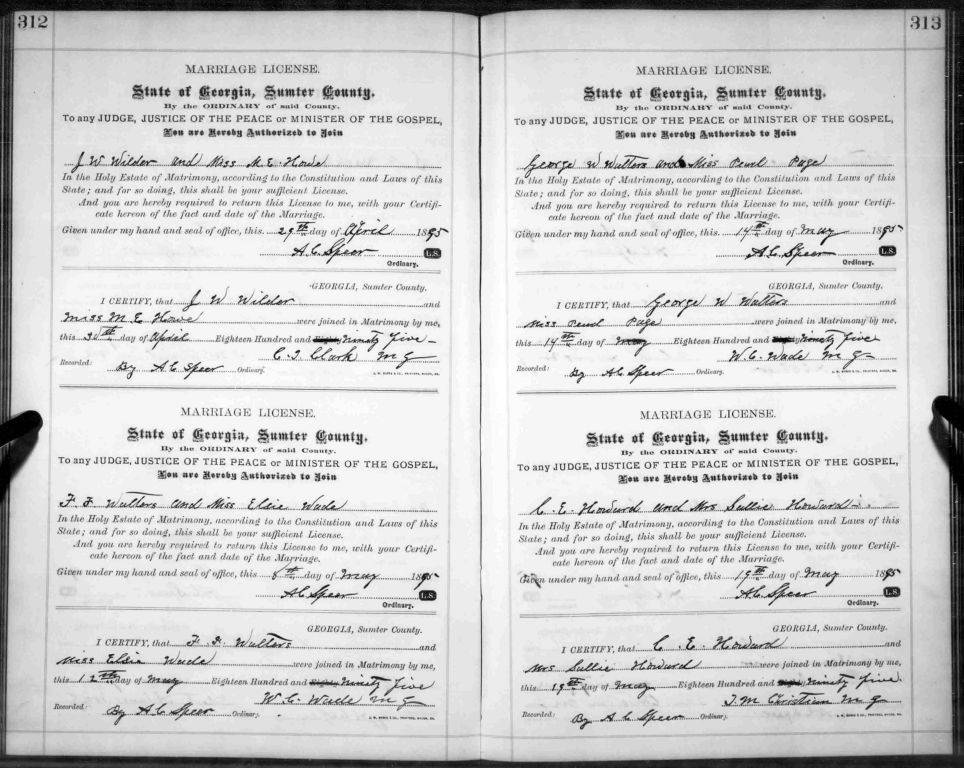 312
MARRIAGE LICENSE.
State of Georgia, Sumter County.
By the ORDINARY of said County.
To any JUDGE, JUSTICE OF THE PEACE or MINISTER OF THE GOSPEL,
You are Hereby Authorized to Join
J W Wilder and Miss M. E. Howe
In the Holy Estate of Matrimony, according to the Constitution and Laws of this
State; and for so doing, this shall be your sufficient License.
And you are hereby required to return this License to me, with your Certifi-
cate hereon of the fact and date of the Marriage.
Given under my hand and seal of office, this 29th day of April 1895
A. C. Speer L.S.
Ordinary.
GEORGIA, Sumter County.
I CERTIFY, that J W Wilder and
Miss M E Howe were joined in Matrimony by me,
this 30th day of April Eighteen Hundred and Eighty Ninety five
C. T. Clark M G
Recorded: By A C Speer Ordinary.
MARRIAGE LICENSE.
State of Georgia, Sumter County.
By the ORDINARY of said County.
To any JUDGE, JUSTICE OF THE PEACE or MINISTER OF THE GOSPEL,
You are Hereby Authorized to Join
F. F. Watters and Miss Elsie Wade
In the Holy Estate of Matrimony, according to the Constitution and Laws of this
State; and for so doing, this shall be your sufficient License.
And you are hereby required to return this License to me, with your Certifi-
cate hereon of the fact and date of the Marriage.
Given under my hand and seal of office, this 8th day of May 1895
A C Speer L.S.
Ordinary.
GEORGIA, Sumter County.
I CERTIFY, that F. F. Watters and
Miss Elsie Wade were joined in Matrimony by me,
this 12th day of May Eighteen Hundred and Eighty Ninety five
W. C. Wade M G
Recorded: By A C Speer Ordinary.
313
MARRIAGE LICENSE.
State of Georgia, Sumter County.
By the ORDINARY of said County.
To any JUDGE, JUSTICE OF THE PEACE or MINISTER OF THE GOSPEL,
You are Hereby Authorized to Join
George W Watters and Miss Pearl Page
In the Holy Estate of Matrimony, according to the Constitution and Laws of this
State; and for so doing, this shall be your sufficient License.
And you are hereby required to return this License to me, with your Certifi-
cate hereon of the fact and date of the Marriage.
Given under my hand and seal of office, this 14th day of May 1895
A. C. Speer L.S.
Ordinary.
GEORGIA, Sumter County.
I CERTIFY, that George W Watters and
Miss Pearl Page were joined in Matrimony by me,
this 14th day of May Eighteen Hundred and Eighty Ninety five
W. C. Wade M G
Recorded: By A C Speer Ordinary.
MARRIAGE LICENSE.
State of Georgia, Sumter County.
By the ORDINARY of said County.
To any JUDGE, JUSTICE OF THE PEACE or MINISTER OF THE GOSPEL,
You are Hereby Authorized to Join
C. E. Howard and Mrs Sallie Howard
In the Holy Estate of Matrimony, according to the Constitution and Laws of this
State; and for so doing, this shall be your sufficient License.
And you are hereby required to return this License to me, with your Certifi-
cate hereon of the fact and date of the Marriage.
Given under my hand and seal of office, this 19th day of May 1895
A C Speer L.S.
Ordinary.
GEORGIA, Sumter County.
I CERTIFY, that C. E. Howard and
Mrs Sallie Howard were joined in Matrimony by me,
this 19th day of May Eighteen Hundred and Eighty Ninety five
J. M Christian M G
Recorded: By A C Speer Ordinary.